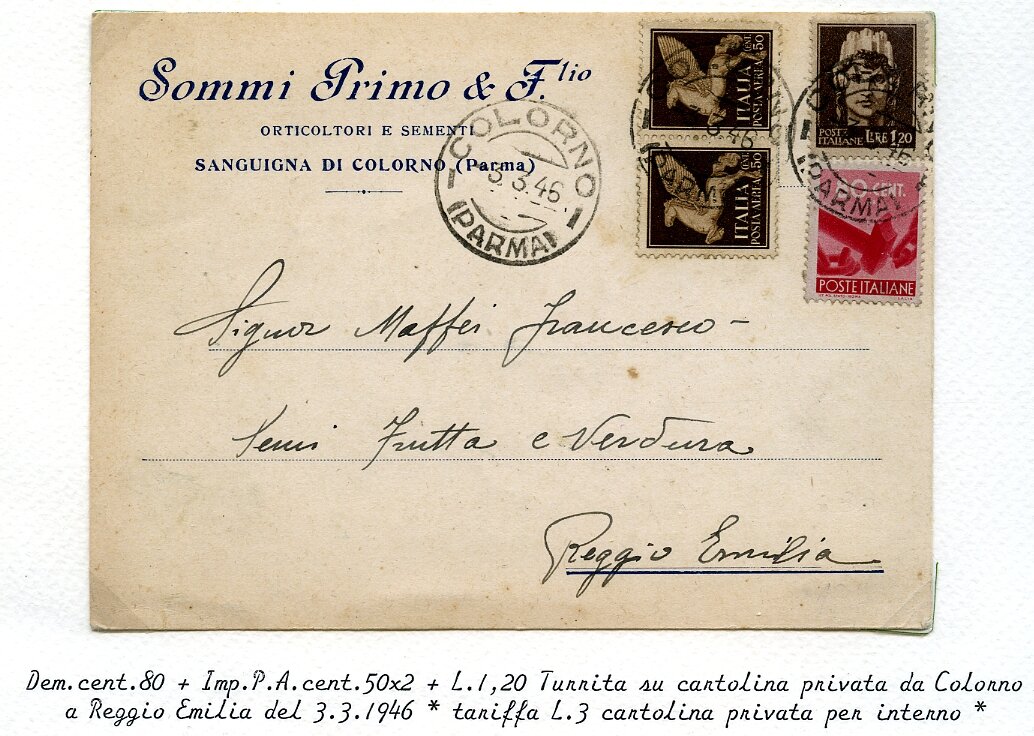 Sommi Primo & F.lio
ORTICOLTORI E SEMENTI
SANGUIGNA DI COLORNO (Parma)
COLORNO
3.3.46
(PARMA)
ITALIA CENT. 50
POSTA AEREA
ITALIA CENT. 50
POSTA AEREA
POSTE ITALIANE LIRE 1,20
80 CENT.
POSTE ITALIANE
Signor Maffei Francesco -
Semi Frutta e Verdura
Reggio Emilia
Dem.cent.80 + Imp.P.A.cent.50x2 + L.1,20 Turrita su cartolina privata da Colorno
a Reggio Emilia del 3.3.1946 * tariffa L.3 cartolina privata per interno *